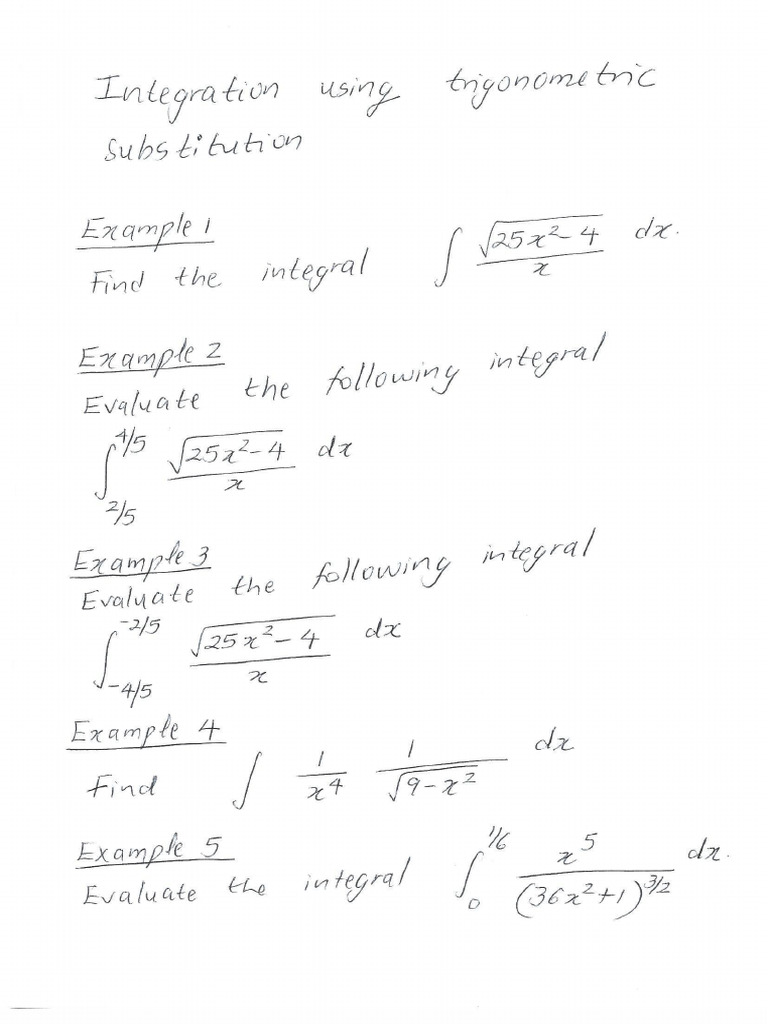 Integration using trigonometric
substitution
Example 1
Find the integral ∫ √(25x² - 4) / x dx.
Example 2
Evaluate the following integral
∫_{2/5}^{4/5} √(25x² - 4) / x dx
Example 3
Evaluate the following integral
∫_{-4/5}^{-2/5} √(25x² - 4) / x dx
Example 4
Find ∫ 1/x⁴ 1/√(9 - x²) dx
Example 5
Evaluate the integral ∫_{0}^{1/6} x⁵ / (36x² + 1)^{3/2} dx.